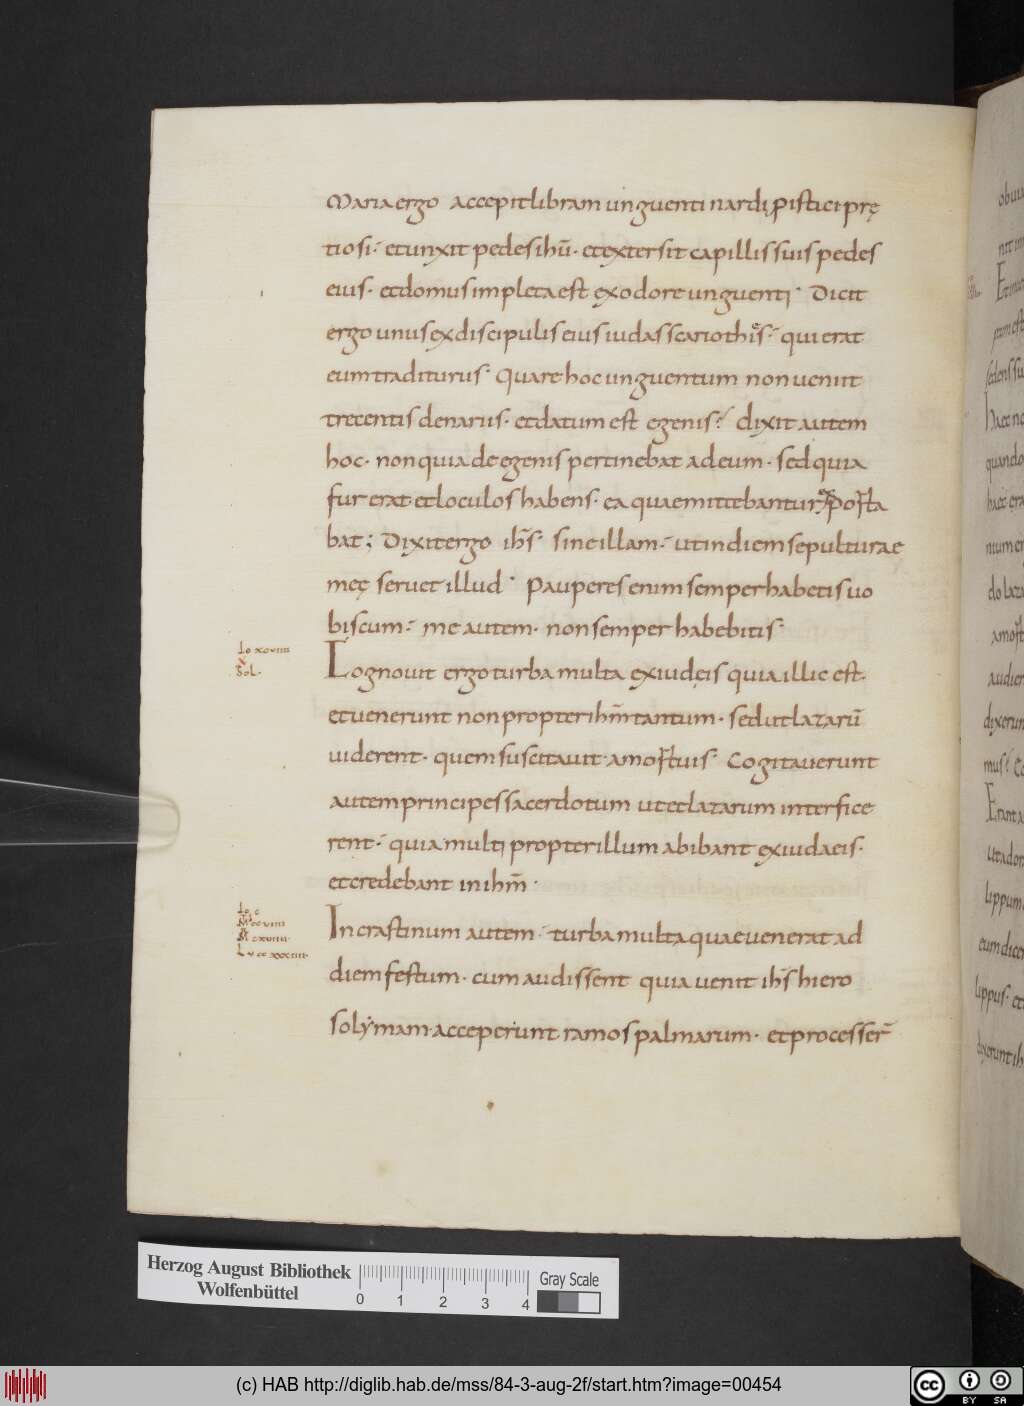 Maria ergo accepit libram unguenti nardi pistici prę
tiosi · et unxit pedes ihū · et extersit capillis suis pedes
eius · et domus impleta est ex odore unguenti · Dicit
ergo unus ex discipulis eius iudas scariothis · qui erat
eum traditurus · Quare hoc unguentum non uenut
trecentis denariis · et datum est egenis ? dixit autem
hoc · non quia de egenis pertinebat ad eum · sed quia
fur erat · et loculos habens · ea quae mittebantur porta
bat ; Dixit ergo ihs̄ · sine illam · ut in diem sepulturae
meę seruet illud · Pauperes enim semper habetis uo
biscum · me autem · non semper habebitis ·
Io xcviiii
x
Sol ·
Cognouit ergo turba multa ex iudęis quia illic est ·
et uenerunt non propter ihm̄ tantum · sed ut lazarū
uiderent · quem suscitauit a mortuis · Cogitauerunt
autem principes sacerdotum ut et lazarum interfice
rent · quia multi propter illum abibant ex iudaeis ·
et credebant in ihm̄ ·
Io c
M ccviiii
Mr cxviiii ·
Lu ccxxxiiii ·
In crastinum autem · turba multa quae uenerat ad
diem festum · cum audissent quia uenit ihs̄ hiero
solẏmam · acceperunt ramos palmarum · et processer̄
obuia
Herzog August Bibliothek
Wolfenbüttel
0 1 2 3 4
Gray Scale
(c) HAB http://diglib.hab.de/mss/84-3-aug-2f/start.htm?image=00454
cc BY SA